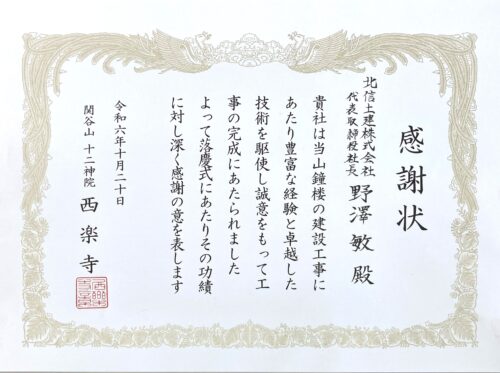 感謝状
北信土建株式会社
代表取締役社長 野澤敏殿
貴社は当山鐘楼の建設工事に
あたり豊富な経験と卓越した
技術を駆使し誠意をもって工
事の完成にあたられました
よって落慶式にあたりその功績
に対し深く感謝の意を表します
令和六年十月二十日
関谷山 十二神院 西楽寺